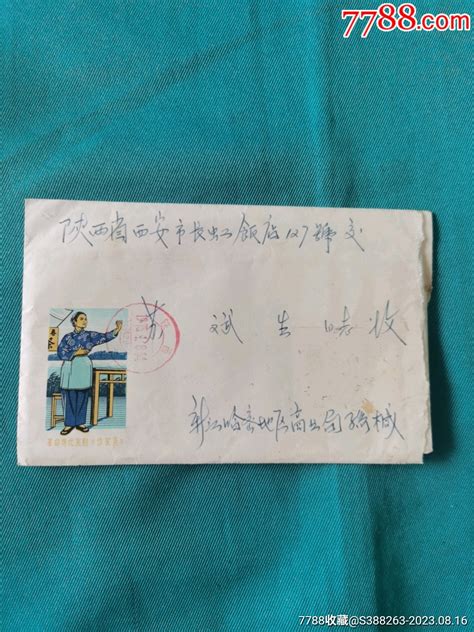 7788.com
陕西省西安市长虹飯店127號交
斌 生 同志 收
新江哈密地区商业局
革命现代京剧《沙家浜》
7788收藏@S388263-2023.08.16